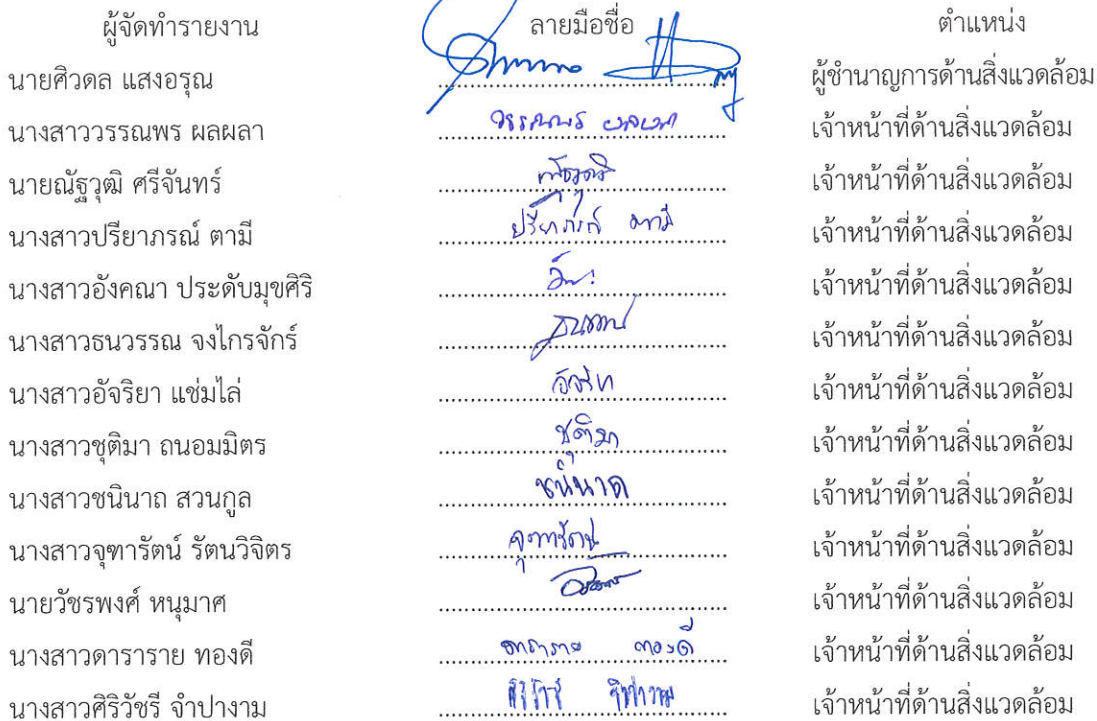 ผู้จัดทำรายงาน ลายมือชื่อ ตำแหน่ง
นายศิวดล แสงอรุณ ผู้ชำนาญการด้านสิ่งแวดล้อม
นางสาววรรณพร ผลผลา วรรณพร ผลผลา เจ้าหน้าที่ด้านสิ่งแวดล้อม
นายณัฐวุฒิ ศรีจันทร์ ณัฐวุฒิ เจ้าหน้าที่ด้านสิ่งแวดล้อม
นางสาวปรียาภรณ์ ตามี ปรียาภรณ์ ตามี เจ้าหน้าที่ด้านสิ่งแวดล้อม
นางสาวอังคณา ประดับมุขศิริ เจ้าหน้าที่ด้านสิ่งแวดล้อม
นางสาวธนวรรณ จงไกรจักร์ ธนวรรณ เจ้าหน้าที่ด้านสิ่งแวดล้อม
นางสาวอัจริยา แช่มไล่ อัจริยา เจ้าหน้าที่ด้านสิ่งแวดล้อม
นางสาวชุติมา ถนอมมิตร ชุติมา เจ้าหน้าที่ด้านสิ่งแวดล้อม
นางสาวชนินาถ สวนกูล ชนินาถ เจ้าหน้าที่ด้านสิ่งแวดล้อม
นางสาวจุฑารัตน์ รัตนวิจิตร จุฑารัตน์ เจ้าหน้าที่ด้านสิ่งแวดล้อม
นายวัชรพงศ์ หนุมาศ เจ้าหน้าที่ด้านสิ่งแวดล้อม
นางสาวดาราราย ทองดี ดาราราย ทองดี เจ้าหน้าที่ด้านสิ่งแวดล้อม
นางสาวศิริวัชรี จำปางาม ศิริวัชรี จำปางาม เจ้าหน้าที่ด้านสิ่งแวดล้อม